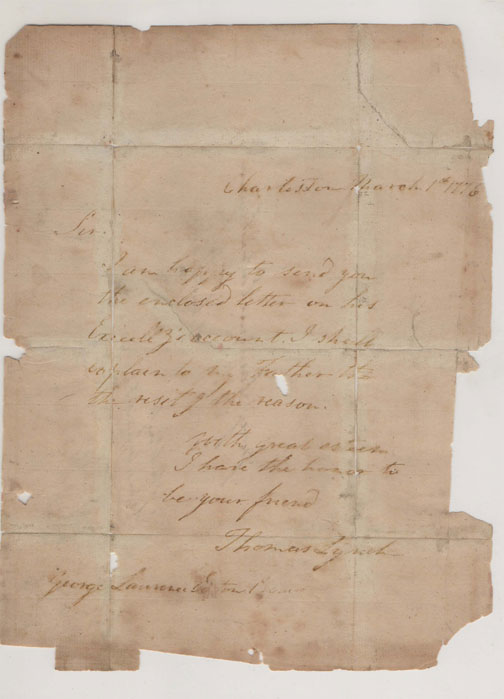 Charleston March 1st 1776
Sir.
I am happy to send you
the enclosed letter on his
Excell'y's account. I shall
explain to my Father
the rest of the reason.
With great esteem
I have the honor to
be your friend
Thomas Lynch
George